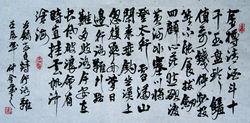 金樽清酒斗十
千玉盘珍羞
值万钱停杯投
箸不能食拔剑
四顾心茫然欲渡
黄河冰塞川将
登太行雪满山
闲来垂钓碧溪上
忽复乘舟梦日
边行路难行路
难多歧路今安在
长风破浪会有时
直挂云帆济沧海
李白诗行路难